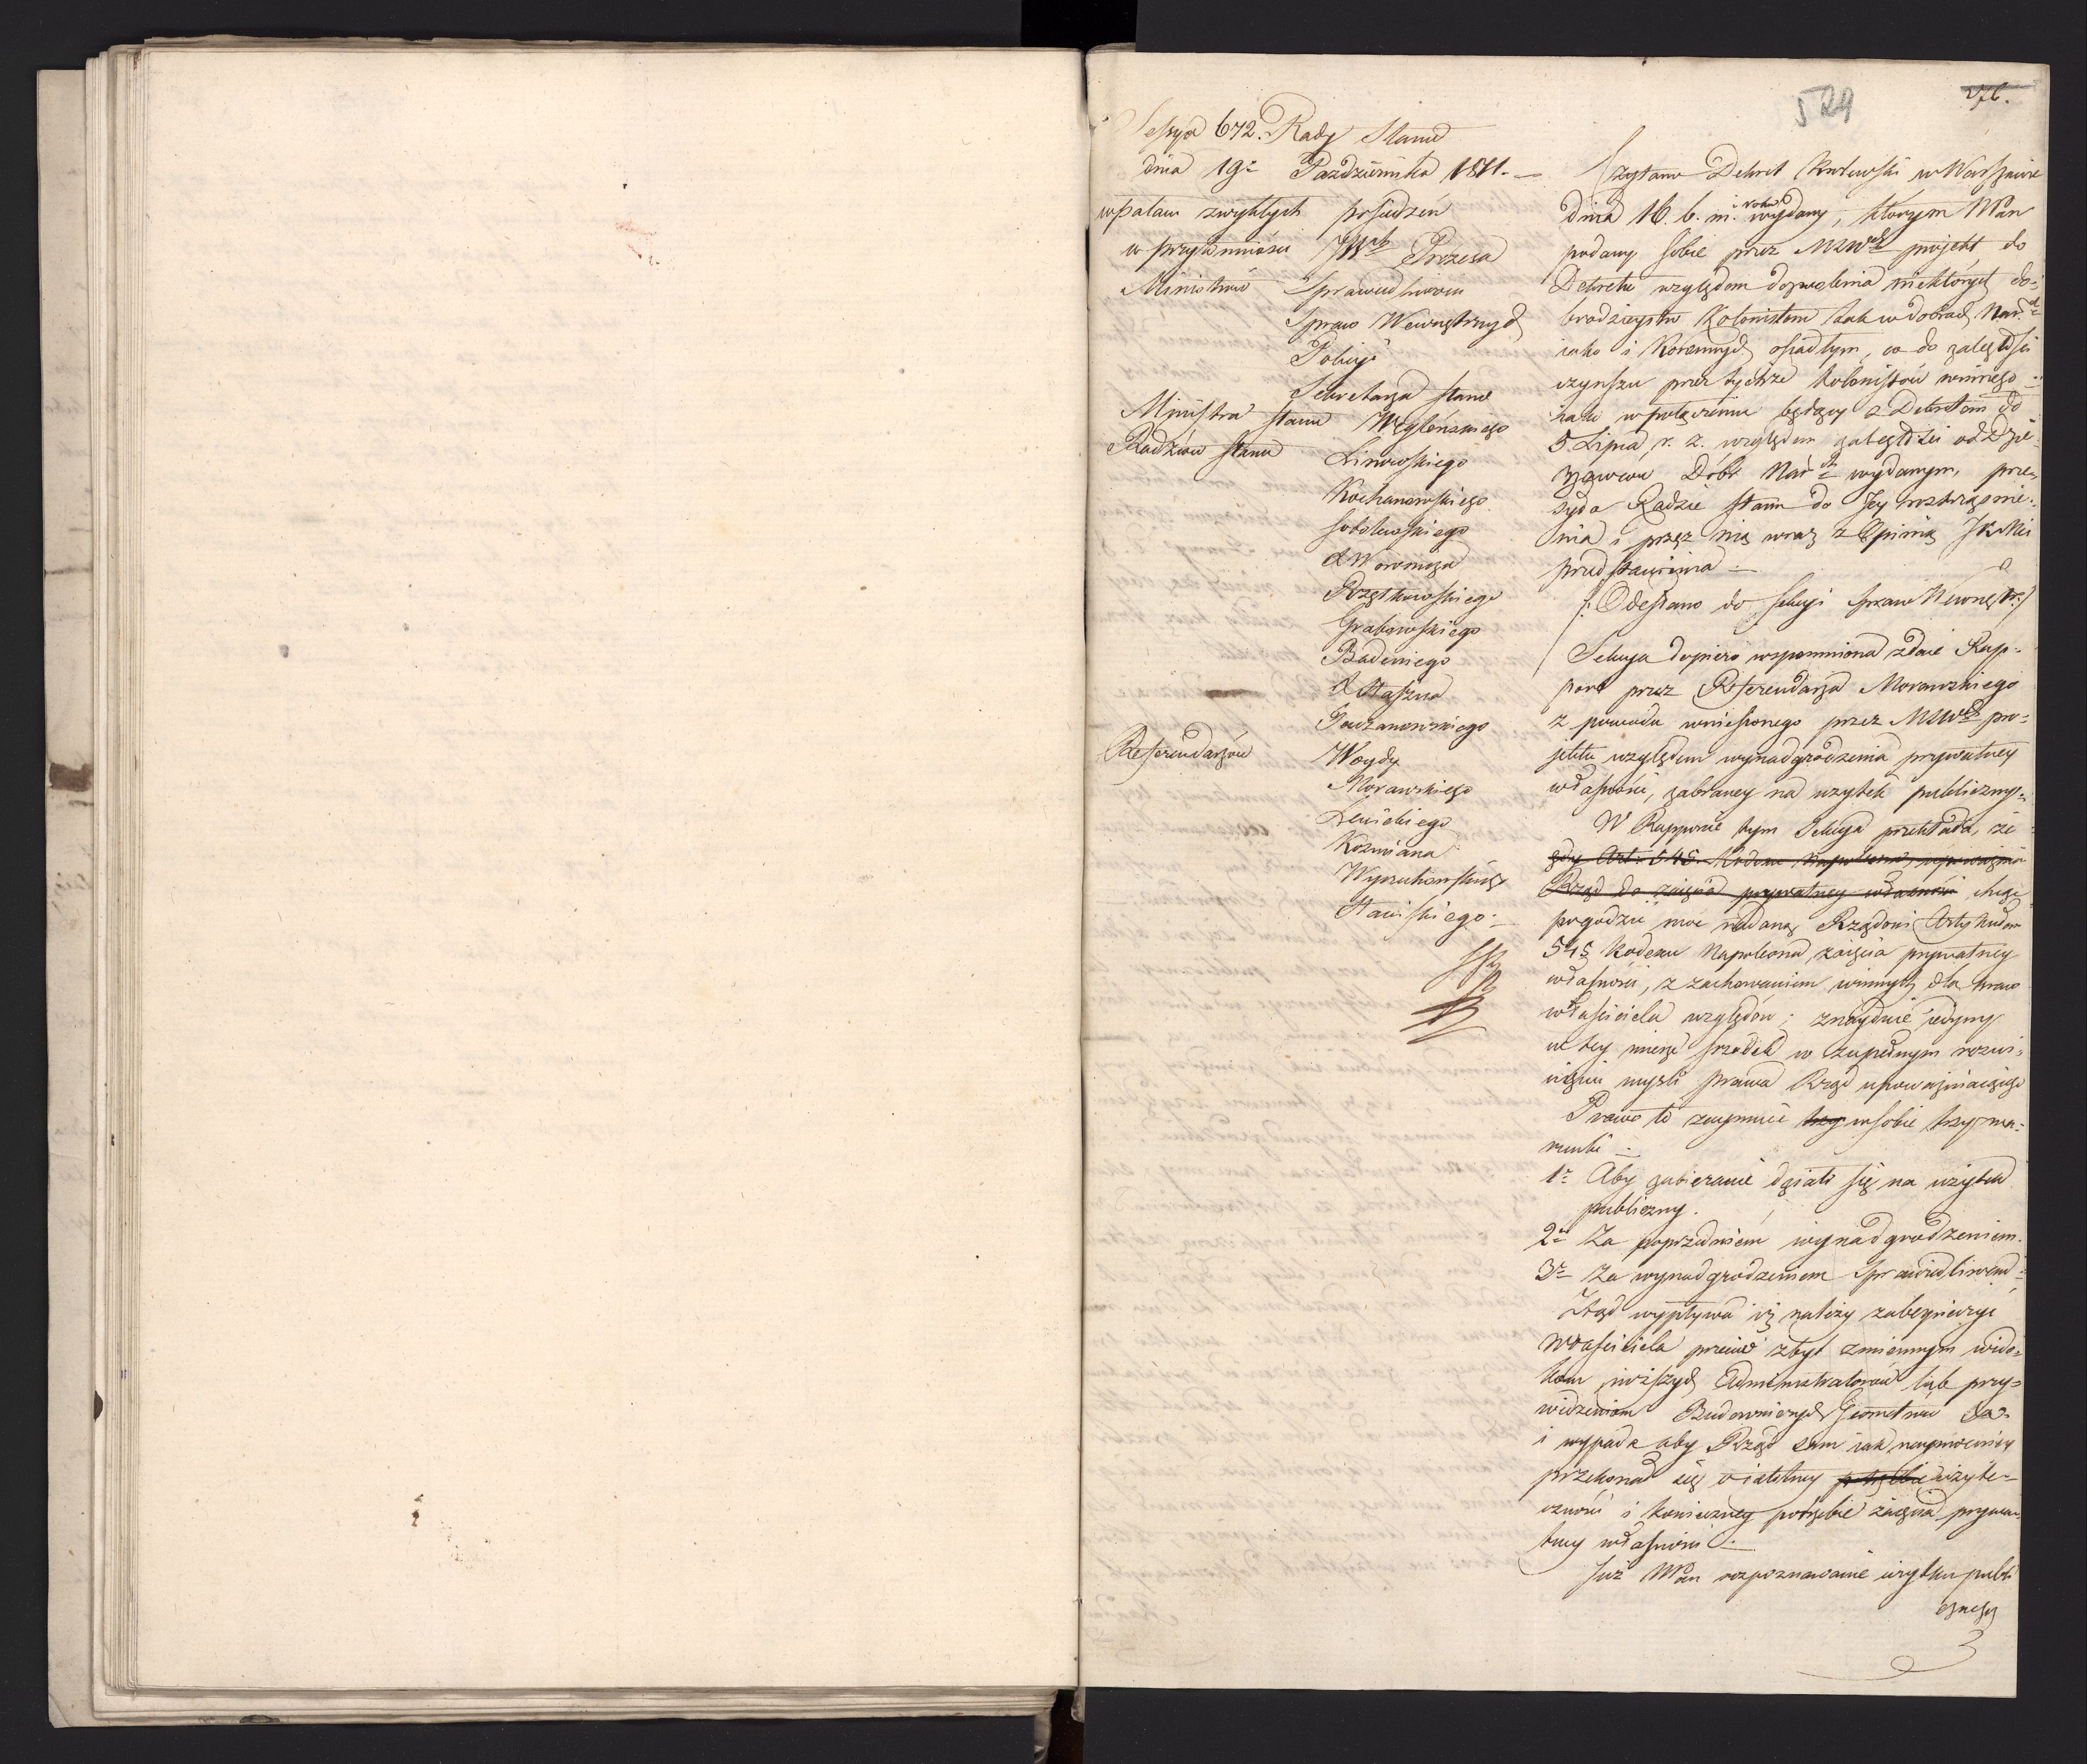 529
276.
Sessya 672. Rady Stanu
dnia 19º Pazdziernika 1811. —
w pałacu zwykłych posiedzeń
w przytomności JW Prezesa
Ministrów Sprawiedliwości
Spraw Wewnętrznych
Policyi
Sekretarza Stanu
Ministra Stanu Węgleńskiego
Radzców Stanu Linowskiego
Kochanowskiego
Sobolewskiego
A Woronicza
Rzętkowskiego
Grabowskiego
Badeniego
X Staszica
Referendarzów Woydy
Morawskiego
Lewickiego
Kozmiana
Wyczechowskiego
Stawiskiego
Czytano Dekret Królewski w Warszawie
dnia 16. b. m. i roku wydany, którym NPan
podany sobie przez MSWch projekt do
Dekretu względem dozwolenia niektórych do-
brodzieystw Kolonistom tak w dobrach Nar.
iako i Koronnych osiadłym, co do zaległości
czynszu przez tychże kolonistów winnego
iako w połączeniu będący z Dekretem do
5 Lipca r. z. względem zaległości od dzie-
rzawców Dóbr Nar wydanym, prze-
syła Radzie Stanu do Jey roztrząśnie-
nia i przez nią wraz z Opinią JKMci
przedstawienia —
/: Odesłano do Sekcyi Spraw Wewnętr:/
Sekcya dopiero wspomniona zdaie Rap-
port przez Referendarza Morawskiego
z powodu wniesionego przez MSWch pro-
jektu względem wynadgrodzenia prywatney
własności, zabraney na uzytek publiczny.
W Rapporcie tym Sekcya przekłada, że
gdy Art: 545. Kodexu Napoleona upoważnia
Rząd do zaięcia prywatney własności chcąc
pogodzić moc nadaną Rządowi Artykułem
545 Kodexu Napoleona, zaięcia prywatney
własności, z zachowaniem winnych dla praw
właściciela względów; znayduie iedyny
w tey mierze srzodek w zupełnym rozwi-
nięciu mysli prawa Rząd upoważniaiącego
Prawo to zaymuie trzy w sobie trzy wa-
runki —
1º Aby zabieranie działo się na użytek
publiczny.
2º Za poprzedniem wynadgrodzeniem.
3º Za wynadgrodzeniem sprawiedliwem —
Ztąd wypływa iż należy zabezpieczyć
właściciela przeciw zbyt zmiennym wido-
kom niższych Administratorów lub przy-
widzeniom Budowniczych Geometrów
i wypada aby Rząd sam iak naypewniey
przekonał się o istotney potrzebie użyte-
czności i konieczney potrzebie zaięcia prywa-
tney własności.
Już NPan rozpoznawanie użytku publi
cznego